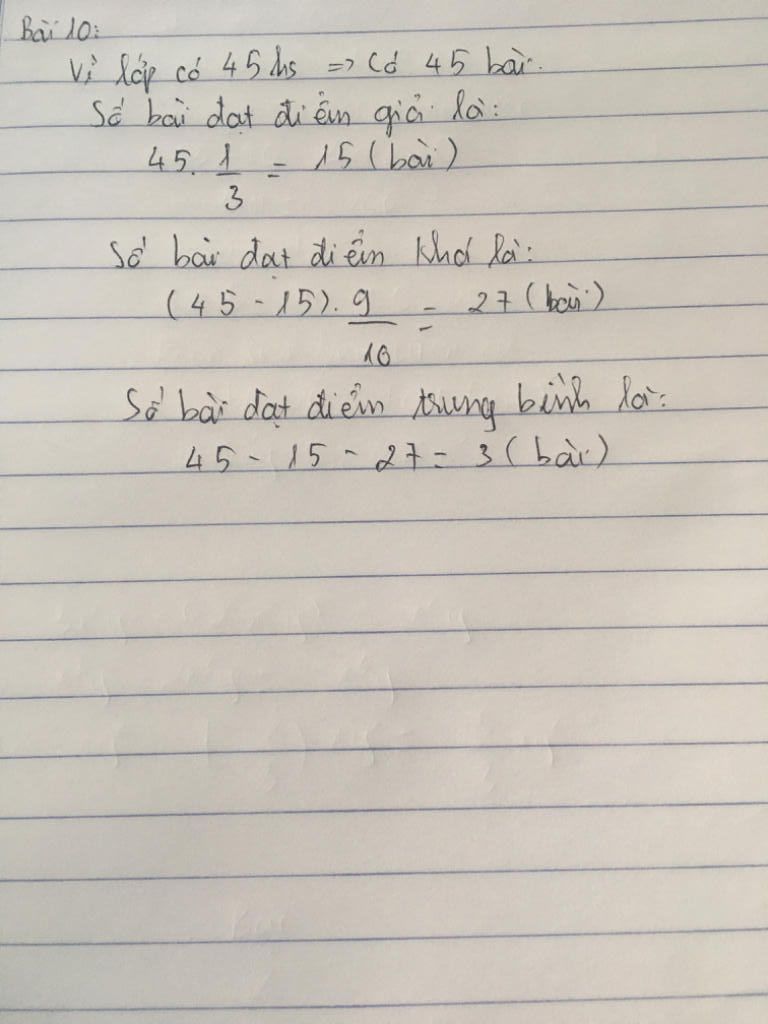 Bài 10:
Vì lớp có 45 hs => Có 45 bài.
Số bài đạt điểm giỏi là:
45. 1/3 = 15 (bài)
Số bài đạt điểm khá là:
(45 - 15). 9/10 = 27 (bài)
Số bài đạt điểm trung bình là:
45 - 15 - 27 = 3 (bài)